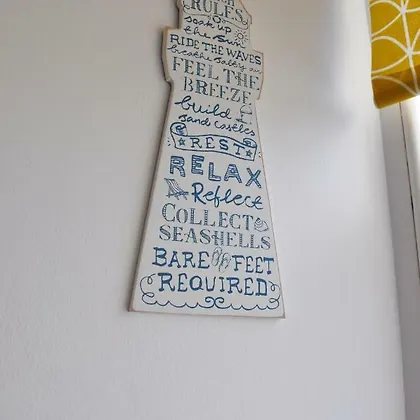 RULES
soak up
the sun
RIDE THE WAVES
breathe salty air
FEEL THE
BREEZE
build
sand castles
REST
RELAX
Reflect
COLLECT
SEASHELLS
BARE FEET
REQUIRED